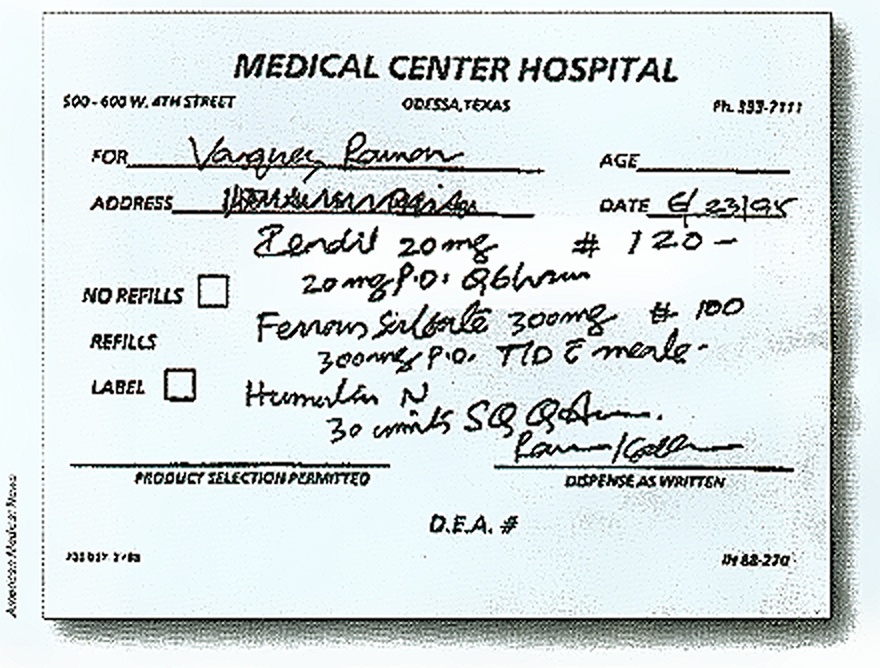 MEDICAL CENTER HOSPITAL
500-600 W. 4TH STREET ODESSA, TEXAS Ph. 333-7111
FOR Vasquez, Ramon AGE
ADDRESS DATE 6/23/95
20 mg # 120 -
20 mg P.O. Q6hours
NO REFILLS
Ferrous Sulfate 300mg # 100
REFILLS
300mg P.O. TID c̄ meals.
LABEL
Humulin N
30 units SQ QAm.
PRODUCT SELECTION PERMITTED DISPENSE AS WRITTEN
D.E.A. #
IN 88-270
American Medical News